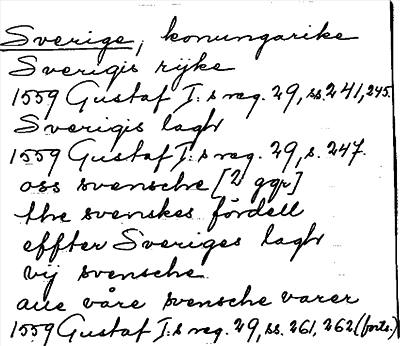 Sverige, konungarike
Sverigis rijke
1559 Gustaf I:s reg. 29, ss. 241, 245.
Sverigis lagh
1559 Gustaf I:s reg. 29, s. 247.
oss svensche [2 ggr]
the svenskes fördell
effter Sveriges lagh
vij svensche
aue våre svensche varer
1559 Gustaf I:s reg. 29, ss. 261, 262 (forts.)